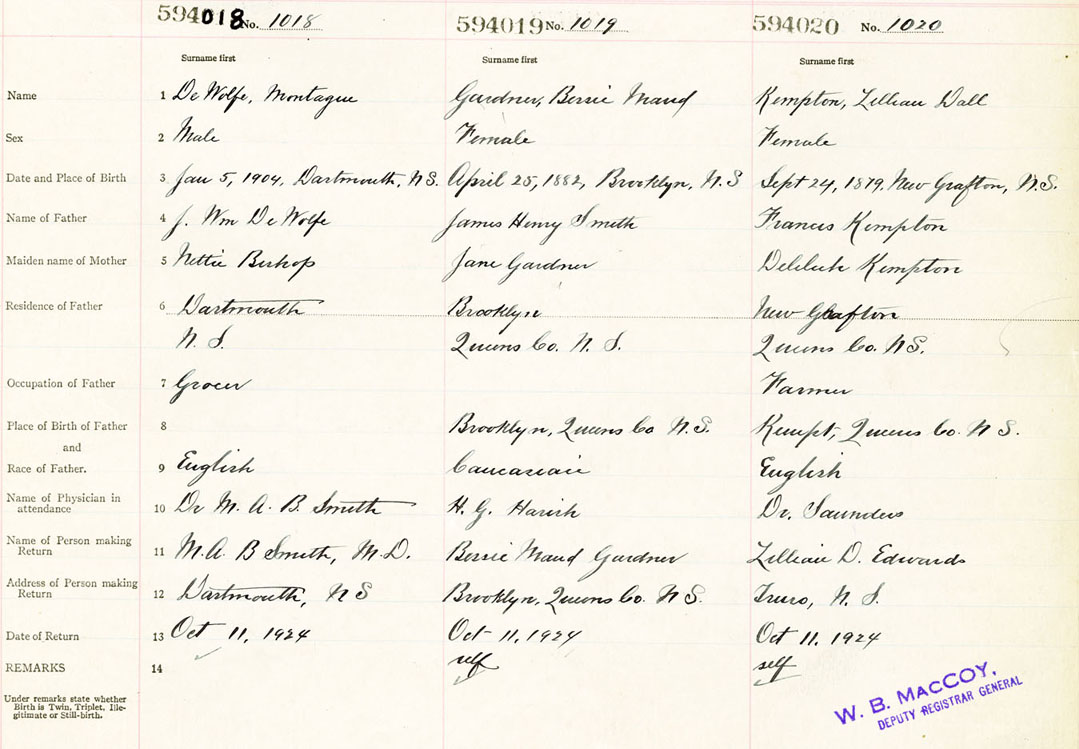 594018 No. 1018 594019 No. 1019 594020 No. 1020
Surname first Surname first Surname first
Name 1 De Wolfe, Montague Gardner, Bessie Maud Kempton, Lillian Dall
Sex 2 Male Female Female
Date and Place of Birth 3 Jan 5, 1904, Dartmouth, N.S. April 25, 1882, Brooklyn, N.S Sept 24, 1879, New Grafton, N.S.
Name of Father 4 J. Wm De Wolfe James Henry Smith Francis Kempton
Maiden name of Mother 5 Nettie Bishop Jane Gardner Kempton
Residence of Father 6 Dartmouth Brooklyn New Grafton
N. S. Queens Co. N. S. Queens Co. N S.
Occupation of Father 7 Grocer Farmer
Place of Birth of Father 8 Brooklyn, Queens Co N.S. Kempt, Queens Co. N S.
and
Race of Father. 9 English Caucasian English
Name of Physician in
attendance 10 Dr M. A. B. Smith H. G. Dr. Saunders
Name of Person making
Return 11 M.A. B Smith, M.D. Bessie Maud Gardner Lillian D. Edwards
Address of Person making
Return 12 Dartmouth, N S Brooklyn, Queens Co. N S. Truro, N. S.
Date of Return 13 Oct 11, 1924 Oct 11, 1924 Oct 11, 1924
REMARKS 14 self self
Under remarks state whether
Birth is Twin, Triplet, Ille-
gitimate or Still-birth.
W. B. MacCOY,
DEPUTY REGISTRAR GENERAL